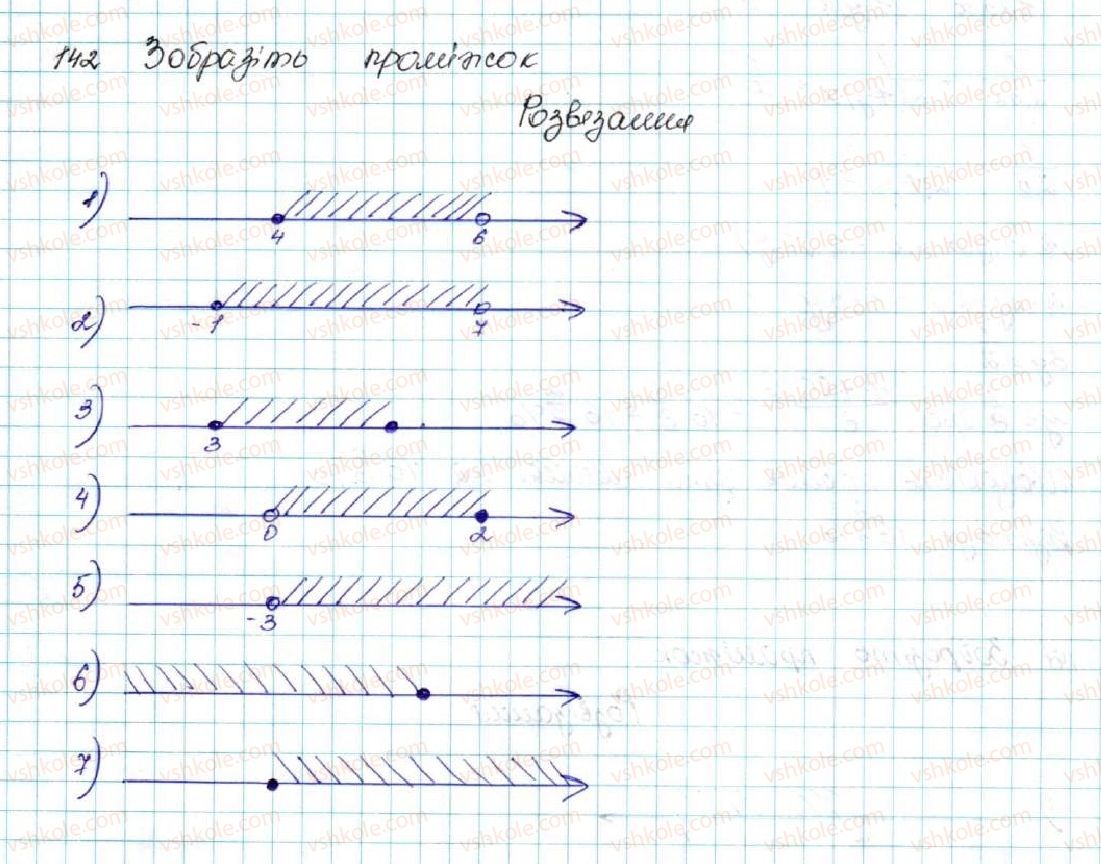 142 Зобразіть проміжок
Розвязання
1)
4 6
2)
-1 7
3)
3
4)
0 2
5)
-3
6)
7)